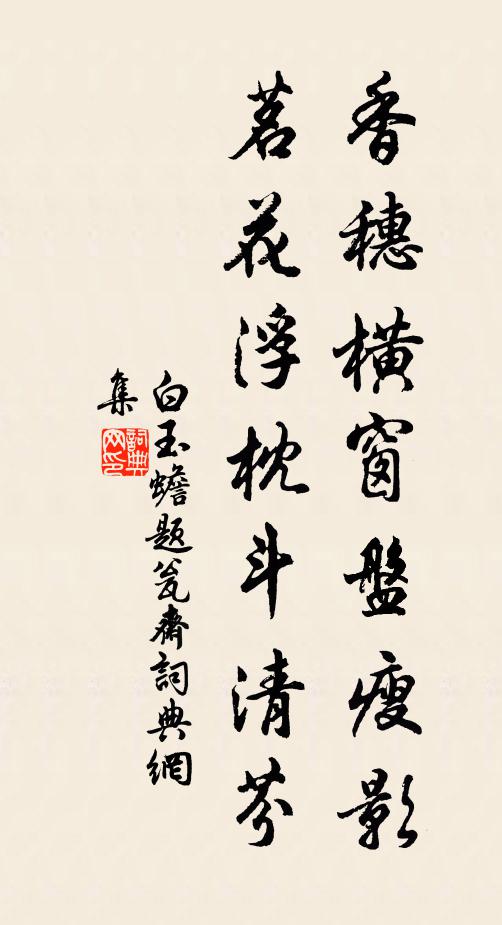 香穗橫窗盤瘦影
茗花浮枕斗清芬
白玉蟾題瓮齋詞典網
集
詞典网印